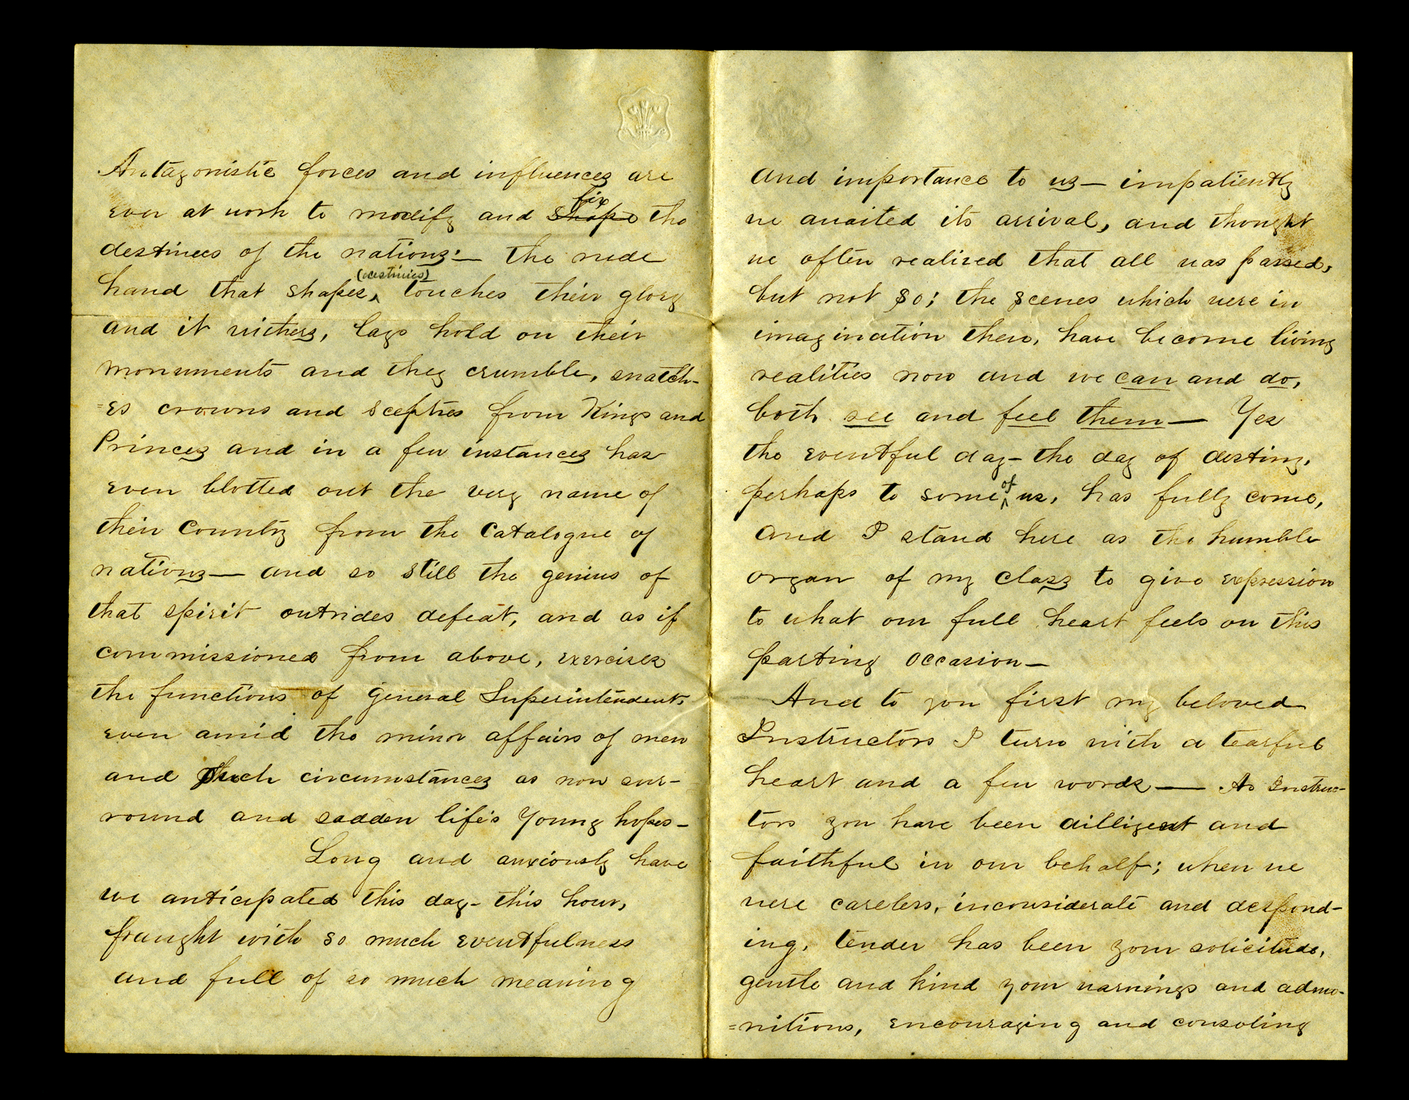 Antagonistic forces and influences are
ever at work to modify and shape fix the
destinees of the nations:— the rude
hand that shapes, (destinies) touches their glory
and it withers, lays hold on their
monuments and they crumble, snatch-
=es crowns and sceptres from Kings and
Princes and in a few instances has
even blotted out the very name of
their Country from the Catalogue of
nations— and so still the genius of
that spirit outrides defeat, and as if
commissioned from above, exercises
the functions of general Superintendent,
even amid the minor affairs of men
and such circumstances as now sur-
round and sadden life's young hopes—
Long and anxiously have
we anticipated this day— this hour,
fraught with so much eventfulness
and full of so much meaning
and importance to us— impatiently
we awaited its arrival, and thought
we often realized that all was passed,
but not so; the scenes which were in
imagination then, have become living
realities now and we can and do,
both see and feel them— Yes
the eventful day— the day of destiny,
perhaps to some of us, has fully come,
and I stand here as the humble
organ of my class to give expression
to what our full heart feels on this
parting occasion—
And to you first my beloved
Instructors I turn with a tearful
heart and a few words— As Instruc-
tors you have been dilligent and
faithful in our behalf; when we
were careless, inconsiderate and despond-
ing, tender has been your solicitude,
gentle and kind your warnings and admo-
=nitions, encouraging and consoling